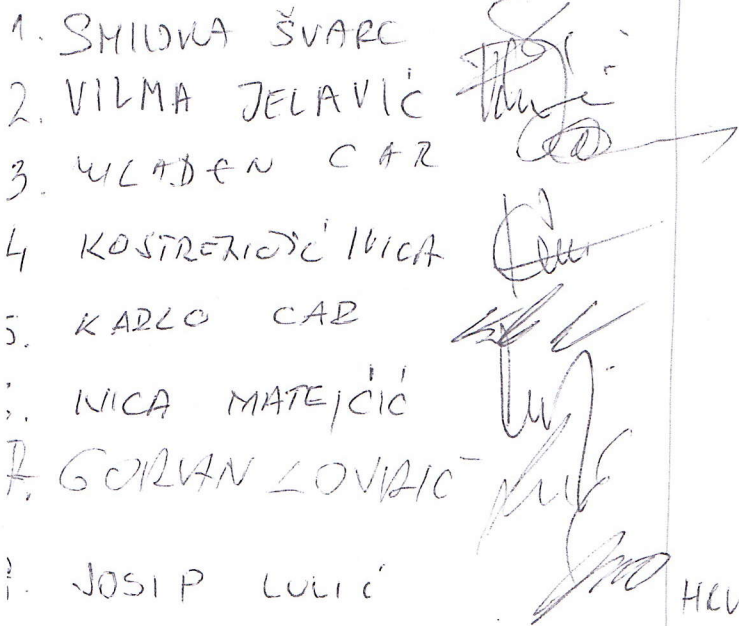 1. SMILJKA ŠVARC
2. VILMA JELAVIĆ
3. MLADEN CAR
4 IVICA
5. KARLO CAR
IVICA MATEJČIĆ
7. GORVAN LOVRIĆ
JOSIP LULIĆ
HRV